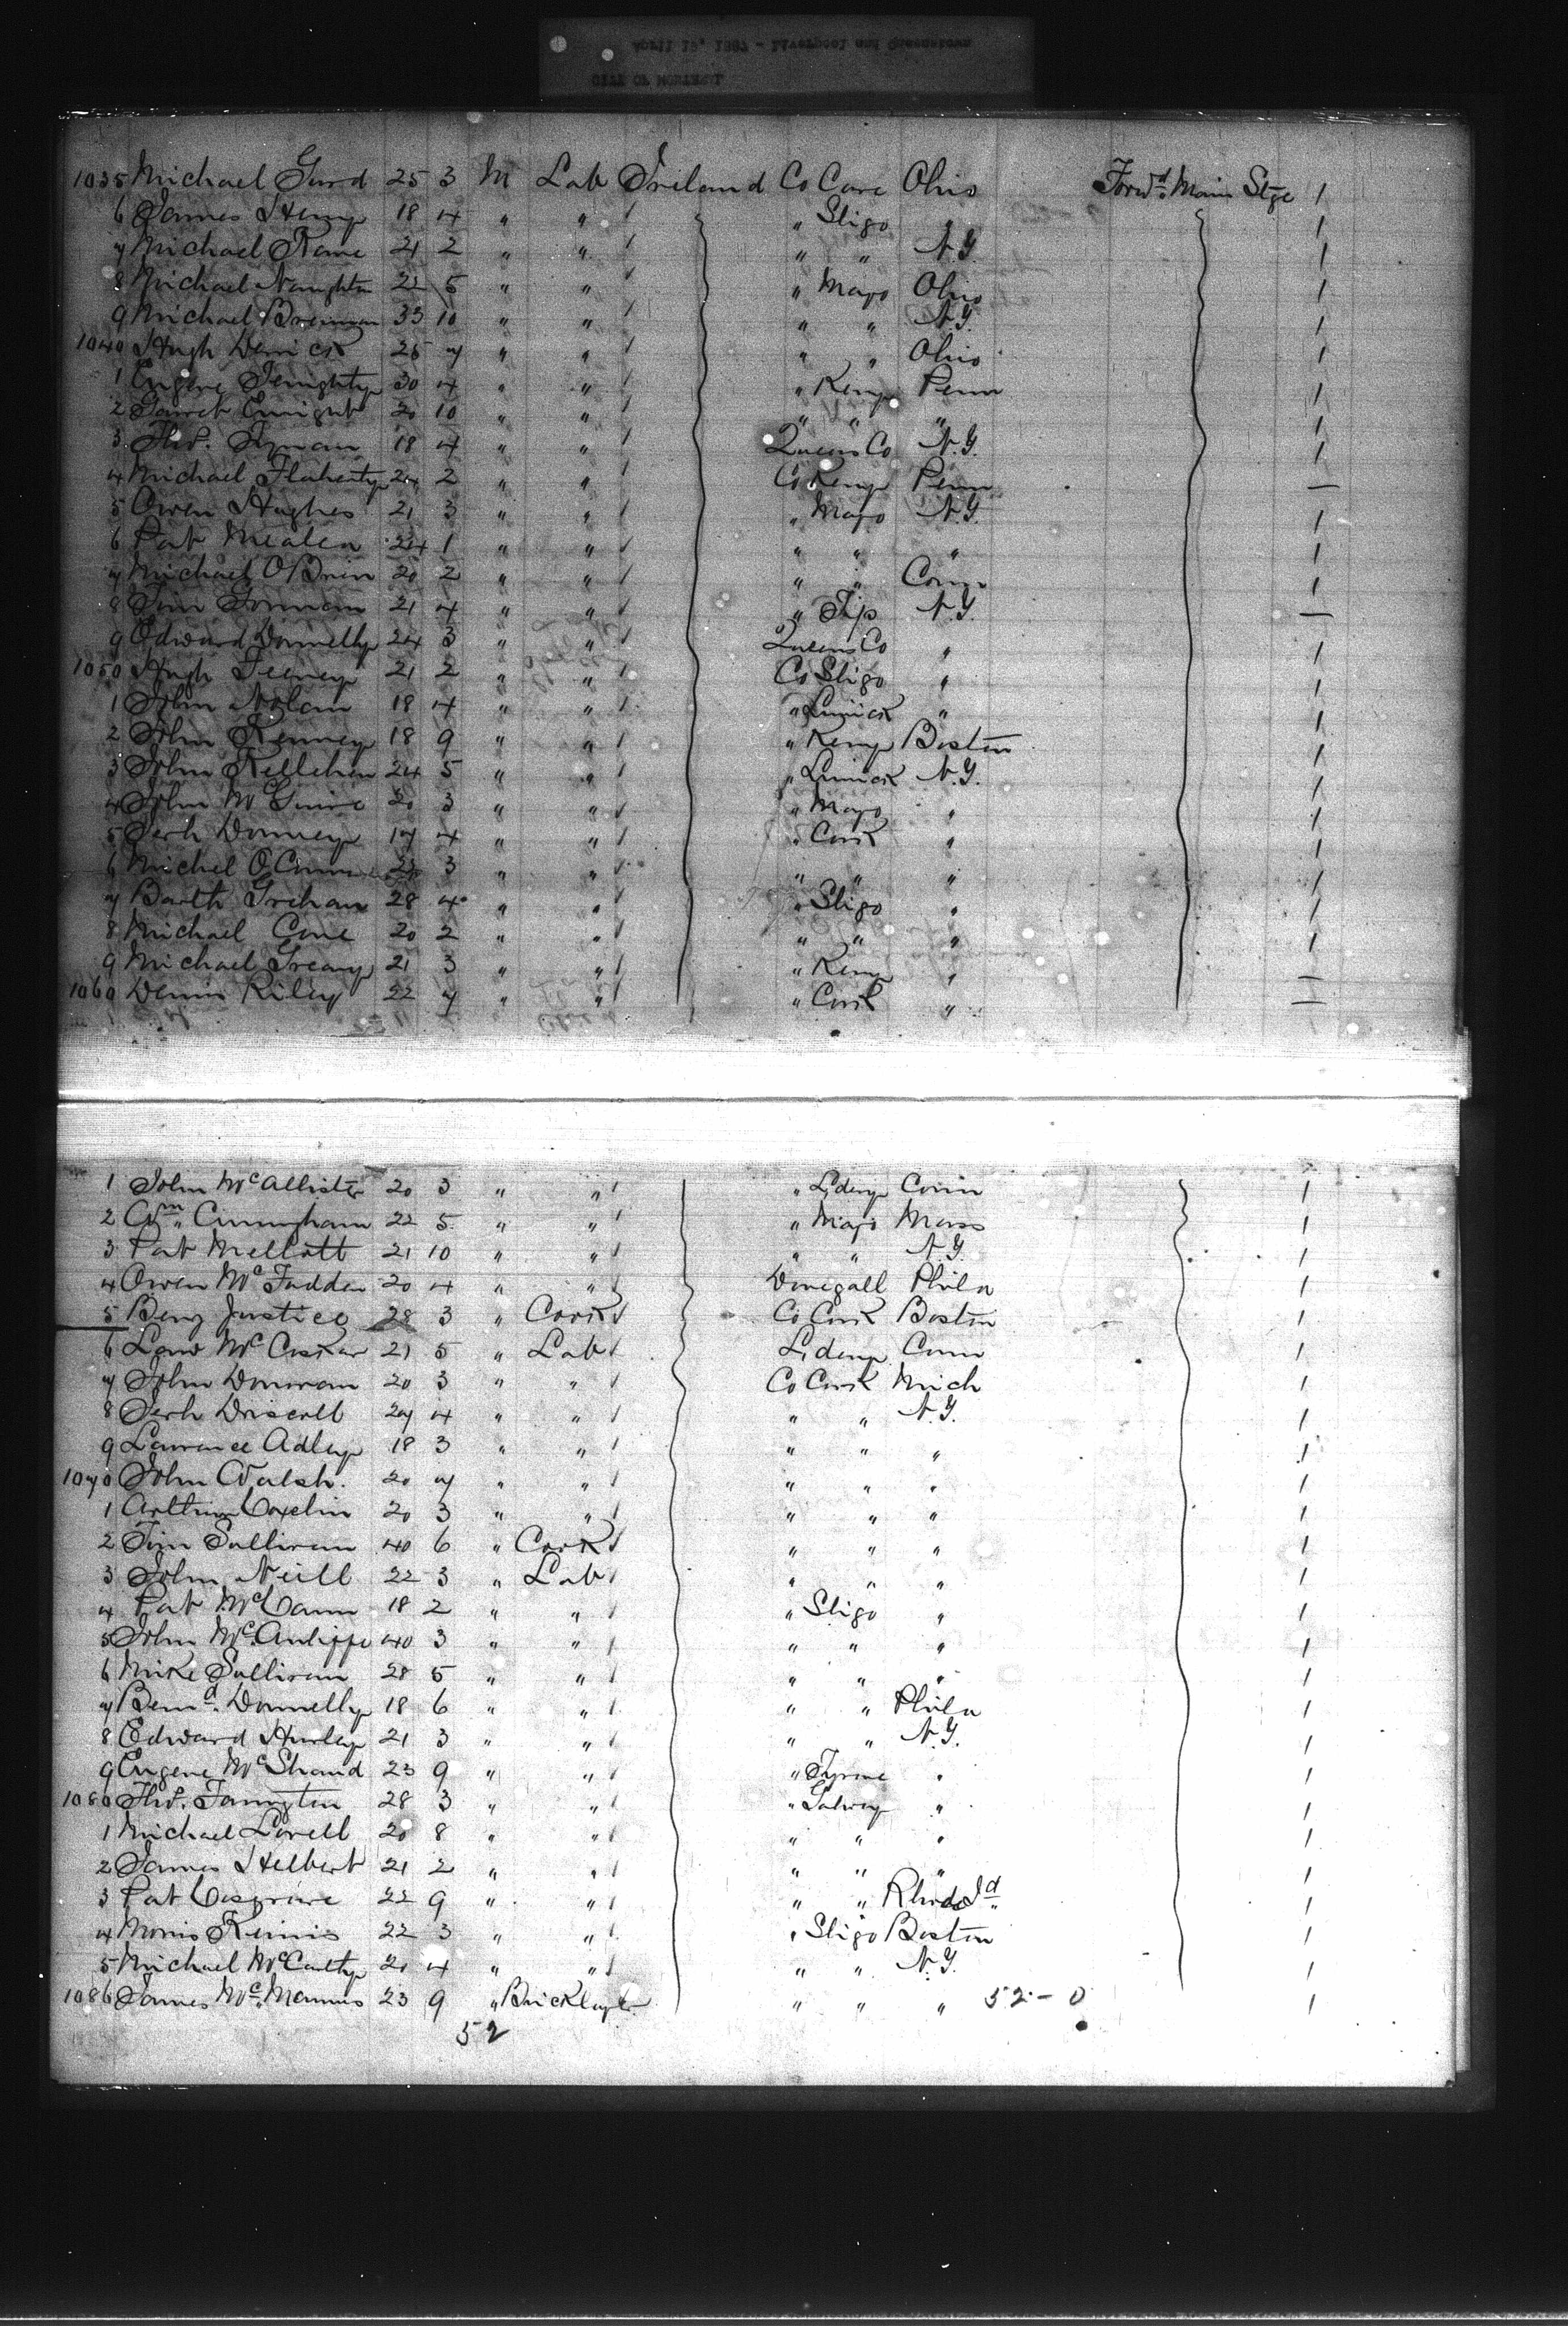 April 15, 1887 - Liverpool and Queenstown
CITY OF MONTREAL
1035 Michael Gard 25 3 M Lab Ireland Co Cave Ohio Forwd. Main Stge 1
6 James Hemp 18 4 " " 1 " Sligo 1
7 Michael Kane 21 2 " " 1 " " N.Y. 1
8 Michael Naughton 22 5 " " 1 " Mayo Ohio 1
9 Michael Brennan 33 10 " " 1 " " N.Y. 1
1040 Hugh Derrick 25 7 " " 1 " " Ohio 1
1 Eugene 30 4 " " 1 " Kerry Penn 1
2 Garret Enright 20 10 " " 1 " " " 1
3 Tho. Tynan 18 4 " " 1 Queens Co N.Y. 1
4 Michael Flaherty 24 2 " " 1 Co Kerry Penn —
5 Owen Hughes 21 3 " " 1 " Mayo N.Y. 1
6 Pat 24 1 " " 1 " " " 1
7 Michael OBrien 20 2 " " 1 " " Conn 1
8 Tim Gorman 21 4 " " 1 " Tip N.Y. —
9 Edward Donnelly 24 3 " " 1 Queens Co " 1
1050 Hugh Feeney 21 2 " " 1 Co Sligo " 1
1 John Nolan 18 4 " " 1 " Limick " 1
2 John Kenney 18 9 " " 1 " Kerry Boston 1
3 John Kellehen 24 5 " " 1 " Limick N.Y. 1
4 John McGuire 20 3 " " 1 " Mayo " 1
5 Jerh Downey 17 4 " " 1 " Cork " 1
6 Michel O'Connor 22 3 " " 1 " " " 1
7 Barth Grehan 28 4 " " 1 " Sligo " 1
8 Michael Cone 20 2 " " 1 " " " 1
9 Michael Greany 21 3 " " 1 " Kerry " —
1060 Denis Riley 22 7 " " 1 " Cork " —
1 John McAllister 20 3 " " 1 " Lderry Conn 1
2 Wm. Cunningham 22 5 " " 1 " Mayo Mass 1
3 Pat Mellott 21 10 " " 1 " " N.Y. 1
4 Owen McFadden 20 4 " " 1 Donegall Phila 1
5 Benj Justice 28 3 " Cook 1 Co Cork Boston 1
6 Law McCosker 21 5 " Lab 1 Lderry Conn 1
7 John Donovan 20 3 " " 1 Co Cork Mich 1
8 Jerh Driscoll 27 4 " " 1 " " N.Y. 1
9 Lawrence Adley 18 3 " " 1 " " " 1
1070 John Walsh. 20 7 " " 1 " " " 1
1 Arthur 20 3 " " 1 " " " 1
2 Tim Sullivan 40 6 " Cook 1 " " " 1
3 John Neill 22 3 " Lab 1 " " " 1
4 Pat McCann 18 2 " " 1 " Sligo "
5 John McAuliffe 40 3 " " 1 " " " 1
6 Mike Sullivan 28 5 " " 1 " " " 1
7 Bernd. Donnelly 18 6 " " 1 " " Phila 1
8 Edward Hurley 21 3 " " 1 " " N.Y. 1
9 Eugene McShand 23 9 " " 1 " Tyrone " 1
1080 Tho. Farrington 28 3 " " 1 " Galway " 1
1 Michael Lovell 20 8 " " 1 " " " 1
2 James Helbert 21 2 " " 1 " " " 1
3 Pat Cosgrove 22 9 " " 1 " " Rhode Id. 1
4 Morris Kinnis 22 3 " " 1 " Sligo Boston 1
5 Michael McCarthy 20 4 " " 1 " " N.Y. 1
1086 James McManus 23 9 " Bricklayer " " " 52 - 0 1
52